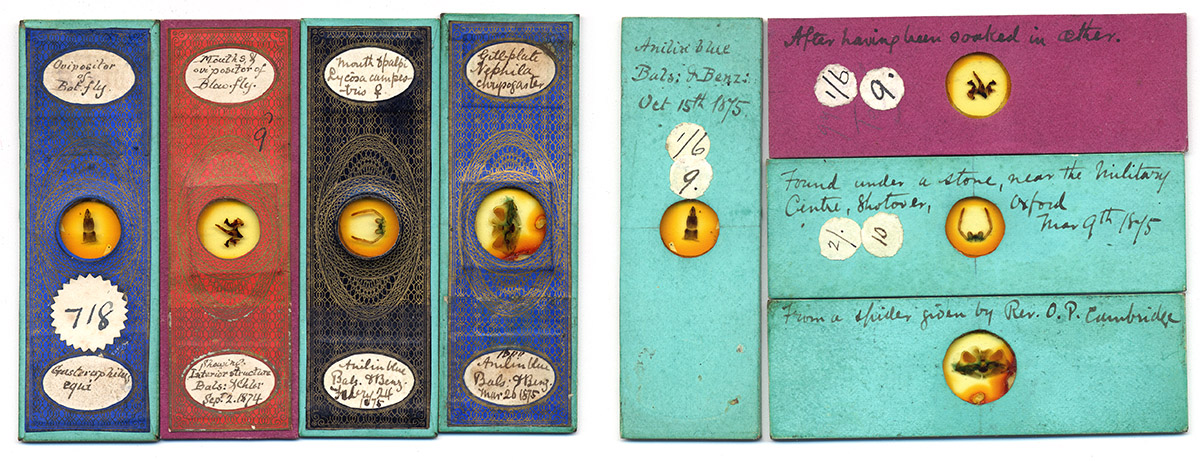 Ovipositor
of
Bot fly.
718
Gasterophilus
equi
Mouths, &
ovipositor of
Blow-fly.
9
Showing
Interior structure
Bals: & Chlor
Sept. 2. 1874
Mouth & palpi
Lycosa campes-
tris ♀.
Anilin blue
Bals. & Benz.
24
1875
Nephila
chrysogaster
Anilin blue
Bals. & Benz.
Mar 26 1875
Aniline blue
Bals: & Benz:
Oct 15th 1875.
1/6
9.
After having been soaked in æther.
1/6
9.
Found under a stone, near the Military
Centre, Shotover, Oxford
Mar 9th 1875
2/.
10
From a spider given by Rev. O. P. Cambridge